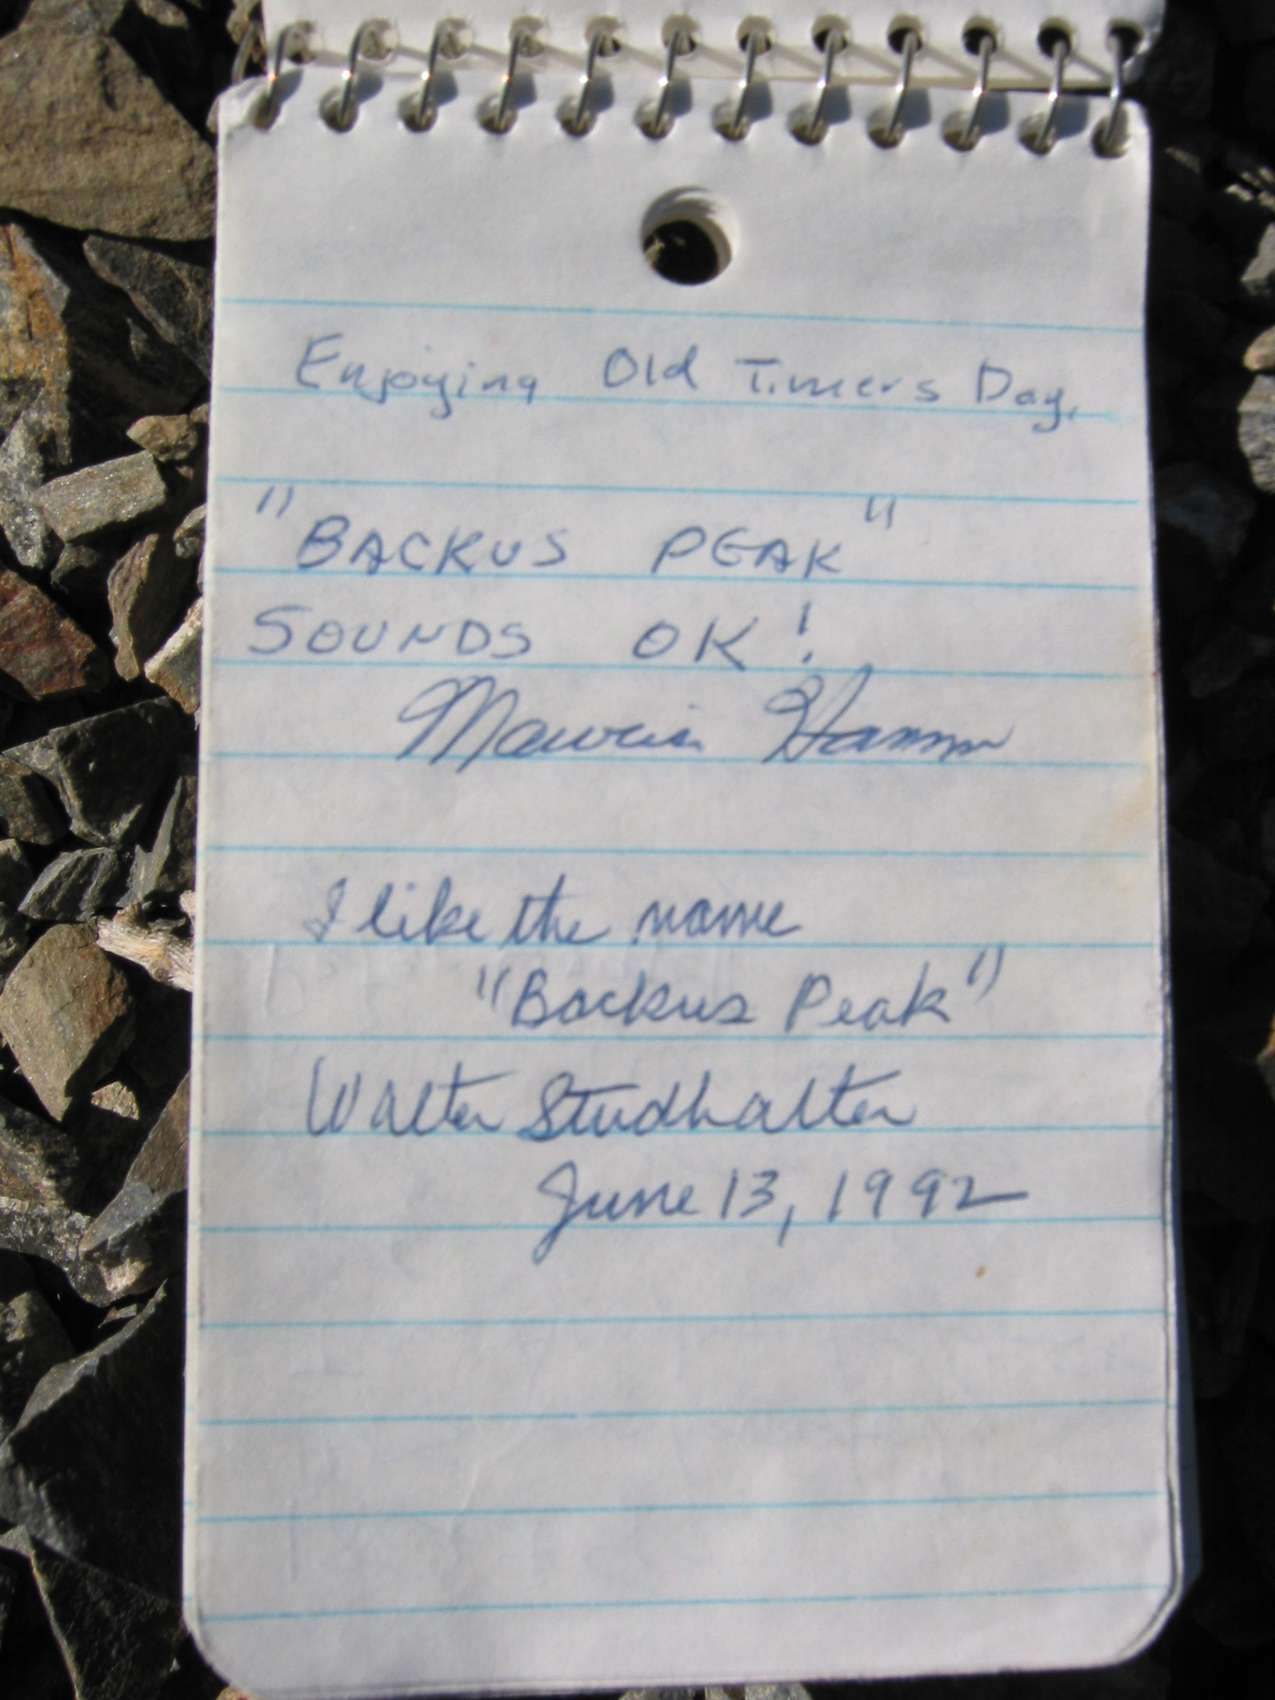 Enjoying Old Timers Day.
"BACKUS PEAK"
SOUNDS OK!
I like the name
"Backus Peak"
Walter Studhalter
June 13, 1992